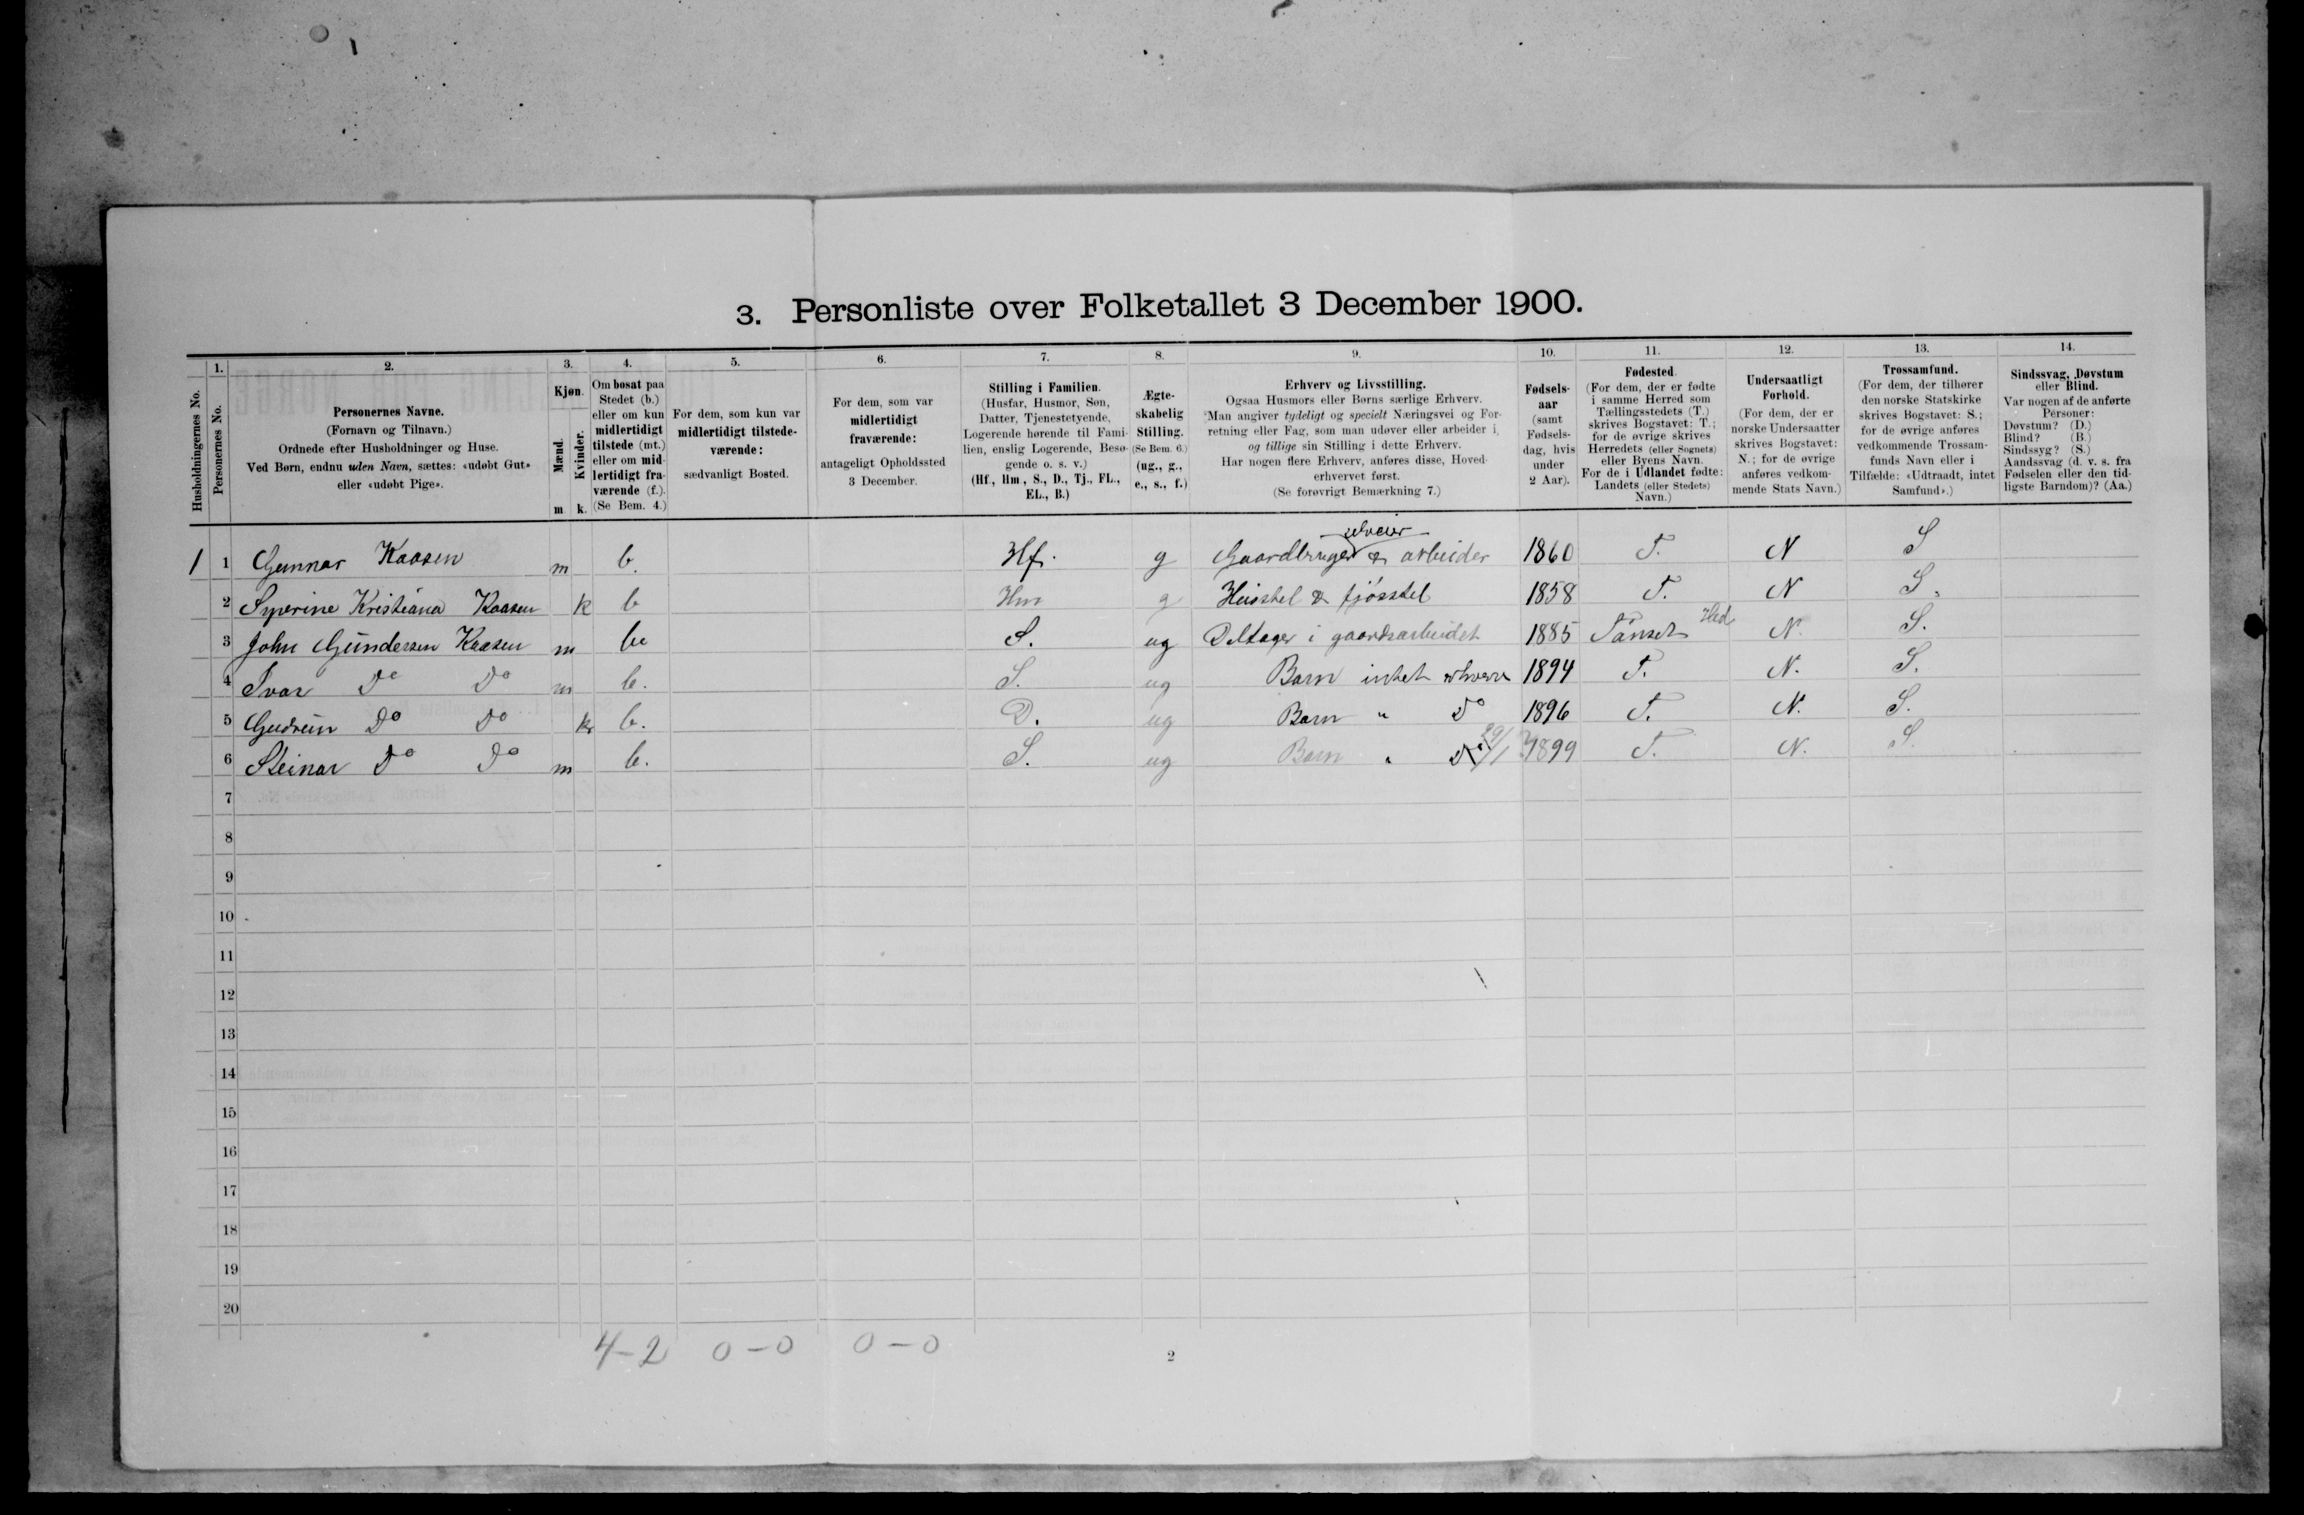 3. Personliste over Folketallet 3 December 1900.
Husholdningernes No.
1.
Personernes No.
2.
Personernes Navne.
(Fornavn og Tilnavn.)
Ordnede efter Husholdninger og Huse.
Ved Børn, endnu uden Navn, sættes: «udøbt Gut»
eller «udøbt Pige».
3.
Kjøn.
Mænd.
m
Kvinder.
k.
4.
Om bosat paa
Stedet (b.)
eller om kun
midlertidigt
tilstede (mt.)
eller om mid-
lertidigt fra-
værende (f.).
(Se Bem. 4.)
5.
For dem, som kun var
midlertidigt tilstede-
værende:
sædvanligt Bosted.
6.
For dem, som var
midlertidigt
fraværende:
antageligt Opholdssted
3 December.
7.
Stilling i Familien.
(Husfar, Husmor, Søn,
Datter, Tjenestetyende,
Logerende hørende til Fami-
lien, enslig Logerende, Besø-
gende o. s. v.)
(Hf., Hm., S., D., Tj., FL.,
EL., B.)
8.
Ægte-
skabelig
Stilling.
(Se Bem. 6.)
(ug., g.,
e., s., f.)
9.
Erhverv og Livsstilling.
Ogsaa Husmors eller Børns særlige Erhverv.
Man angiver tydeligt og specielt Næringsvei og For-
retning eller Fag, som man udøver eller arbeider i,
og tillige sin Stilling i dette Erhverv.
Har nogen flere Erhverv, anføres disse, Hoved-
erhvervet først.
(Se forøvrigt Bemærkning 7.)
10.
Fødsels-
aar
(samt
Fødsels-
dag, hvis
under
2 Aar).
11.
Fødested.
(For dem, der er fødte
i samme Herred som
Tællingsstedets (T.)
skrives Bogstavet: T.;
for de øvrige skrives
Herredets (eller Sognets)
eller Byens Navn.
For de i Udlandet fødte:
Landets (eller Stedets)
Navn.)
12.
Undersaatligt
Forhold.
(For dem, der er
norske Undersaatter
skrives Bogstavet:
N.; for de øvrige
anføres vedkom-
mende Stats Navn.)
13.
Trossamfund.
(For dem, der tilhører
den norske Statskirke
skrives Bogstavet: S.;
for de øvrige anføres
vedkommende Trossam-
funds Navn eller i
Tilfælde: «Udtraadt, intet
Samfund».)
14.
Sindssvag, Døvstum
eller Blind.
Var nogen af de anførte
Personer:
Døvstum? (D.)
Blind? (B.)
Sindssyg? (S.)
Aandssvag (d. v. s. fra
Fødselen eller den tid-
ligste Barndom)? (Aa.)
selveier
1 1 Gunnar Kaasen m b. Hf. g Gaardbruger & arbeider 1860 T. N S
2 Kristiana Kaasen k b Hm g Husstel & fjösstel 1858 T. N S.
3 John Gundersen Kaasen m b S. ug Deltager i gaardsarbeidet 1885 Hed N. S.
4 Ivar Do Do m b. S. ug Barn intet erhverv 1894 T. N. S.
5 Gudrun Do Do k b. D. ug Barn " Do 1896 T. N. S.
6 Steinar Do Do m b. S. ug Barn " Do 1899 T. N. S.
7
8
9
10
11
12
13
14
15
16
17
18
19
20
4-2 0-0 0-0
2